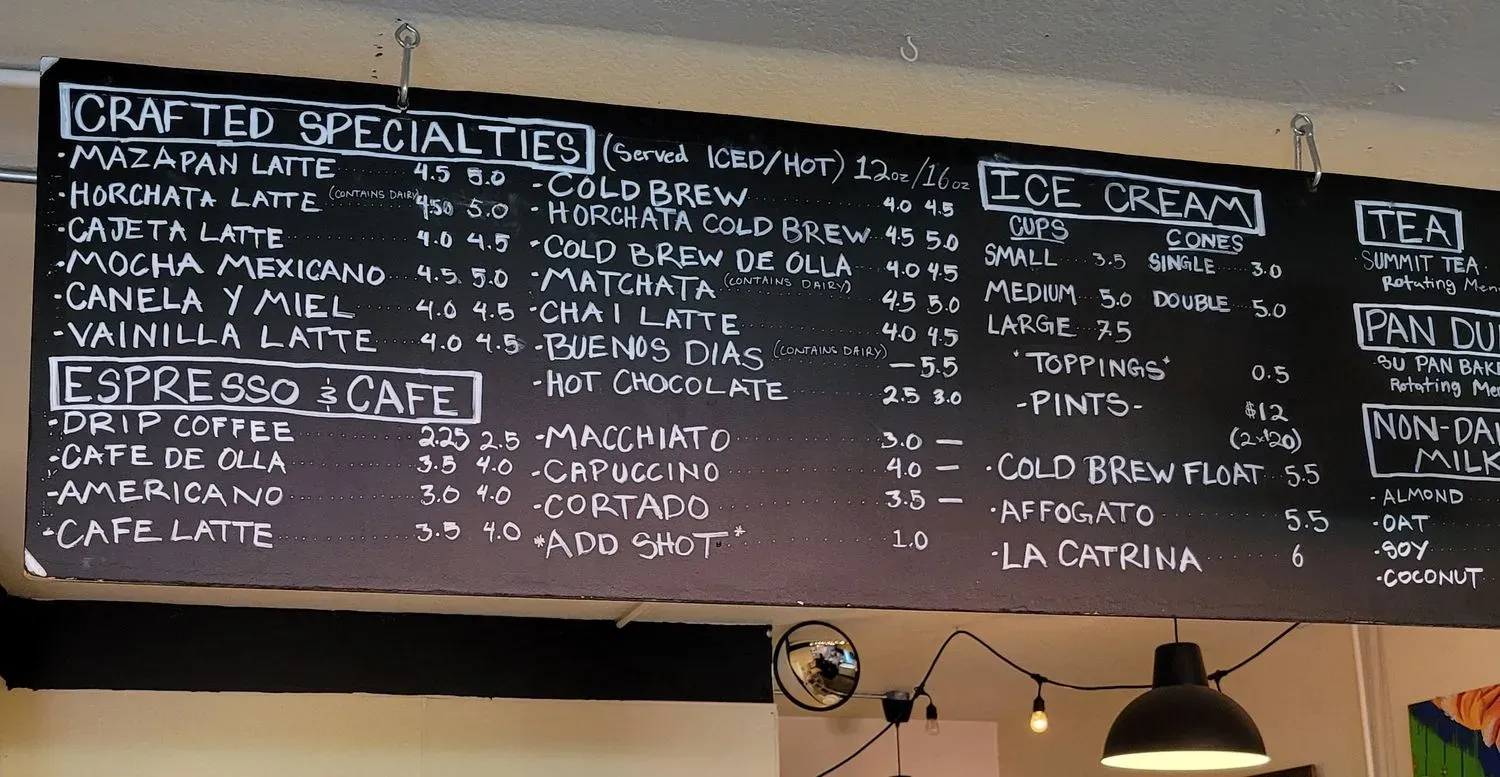 CRAFTED SPECIALTIES (Served ICED/HOT) 12oz/16oz
·MAZAPAN LATTE 4.5 5.0
·HORCHATA LATTE (CONTAINS DAIRY) 4.50 5.0
·CAJETA LATTE 4.0 4.5
·MOCHA MEXICANO 4.5 5.0
-CANELA Y MIEL 4.0 4.5
-VAINILLA LATTE 4.0 4.5
-COLD BREW 4.0 4.5
-HORCHATA COLD BREW 4.5 5.0
-COLD BREW DE OLLA 4.0 4.5
-MATCHATA (CONTAINS DAIRY) 4.5 5.0
-CHAI LATTE 4.0 4.5
-BUENOS DIAS (CONTAINS DAIRY) — 5.5
-HOT CHOCOLATE 2.5 3.0
ESPRESSO & CAFE
-DRIP COFFEE 2.25 2.5
-CAFE DE OLLA 3.5 4.0
-AMERICANO 3.0 4.0
-CAFE LATTE 3.5 4.0
-MACCHIATO 3.0 —
-CAPUCCINO 4.0 —
-CORTADO 3.5 —
*ADD SHOT* 1.0
ICE CREAM
CUPS CONES
SMALL 3.5 SINGLE 3.0
MEDIUM 5.0 DOUBLE 5.0
LARGE 7.5
*TOPPINGS* 0.5
-PINTS- $12
(2x$20)
·COLD BREW FLOAT 5.5
·AFFOGATO 5.5
·LA CATRINA 6
TEA
SUMMIT TEA
Rotating
PAN
·SU PAN
Rotating
NON-
MILK
·ALMOND
·OAT
·SOY
·COCONUT